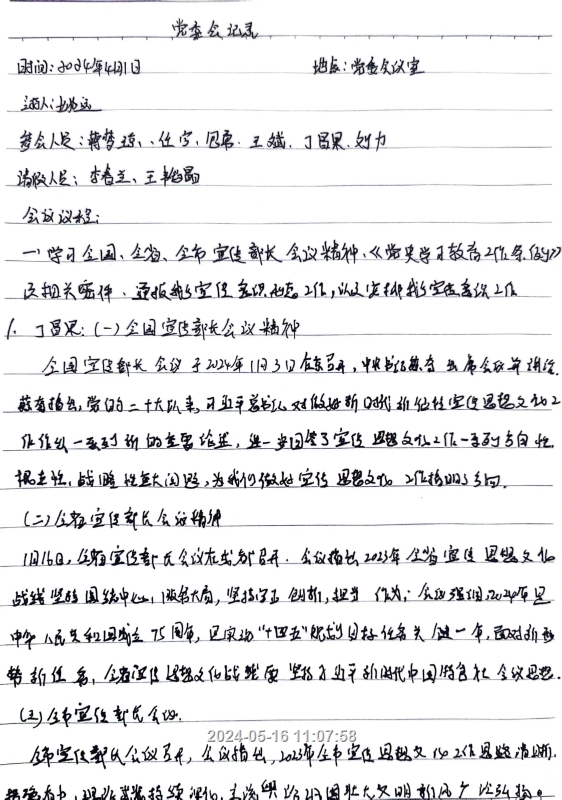 党委会记录
时间：2024年4月1日 地点：党委会议室
主持人：
参会人员：蒋梦琼、任宇、 王斌、丁昌果、刘力
请假人员：李春兰、王
会议议程：
一、学习全国、全省、全市宣传部长会议精神、《党史学习教育工作条例》
及相关案件、通报我 宣传意识形态工作，认 安排我 宣传意识工作
1. 丁昌果：（一）全国宣传部长会议精神
全国宣传部长会议于2024年1月3日在京召开，中央书记 蔡奇出席会议并讲话。
蔡奇指出，党的二十大以来，习近平总书记对做好新时代新征程宣传思想文化工
作作出一系列新的重要论述，进一步回答了宣传思想文化工作一系列方向性、
根本性、战略性重大问题，为我们做好宣传思想文化工作指明了方向。
（二）全省宣传部长会议精神
1月16日，全省宣传部长会议在成都召开。会议指出2023年全省宣传思想文化
战线坚持围绕中心，服务大局，坚持守正创新，担当作为；会议强调，2024年是
中华人民共和国成立75周年，是实现“十四五”规划目标任务关键一年，面对新形
势新任务，全省宣传思想文化战线要坚持习近平新时代中国特色社会主义思想。
（三）全市宣传部长会议。
2024-05-16 11:07:58
全市宣传部长会议召开，会议指出，2023年全市宣传思想文化工作思路清晰、
持续深化，主流舆论 壮大文明新风广泛弘扬。